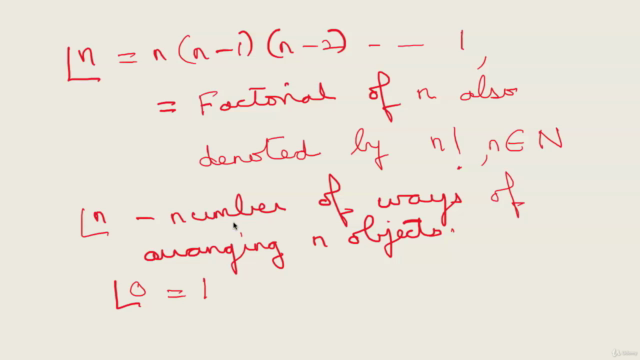 ⌊n = n (n-1) (n-2) - - 1,
= Factorial of n also
denoted by n! , n ∈ N
⌊n - number of ways of
arranging n objects.
⌊0 = 1